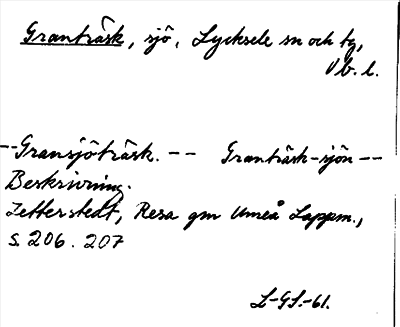 Granträsk, sjö, Lycksele sn och tg,
Vb. l.
--Gransjöträsk. -- Granträsk-sjön --
Beskrivning.
Zetterstedt, Resa gm Umeå Lappm.,
s. 206. 207
L-GS.-61.